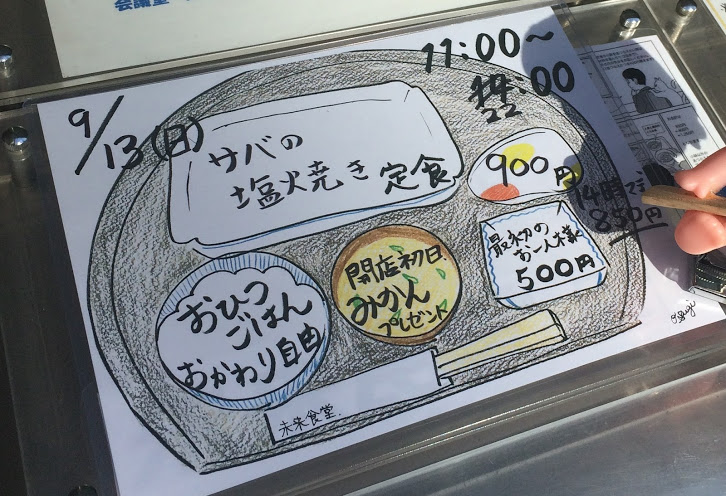 9/13(日)
11:00〜
22:00
サバの
塩焼き 定食
900円
14時まで
850円
最初の
お一人様
500円
開店初日
みかん
プレゼント
おひつ
ごはん
おかわり自由
未来食堂